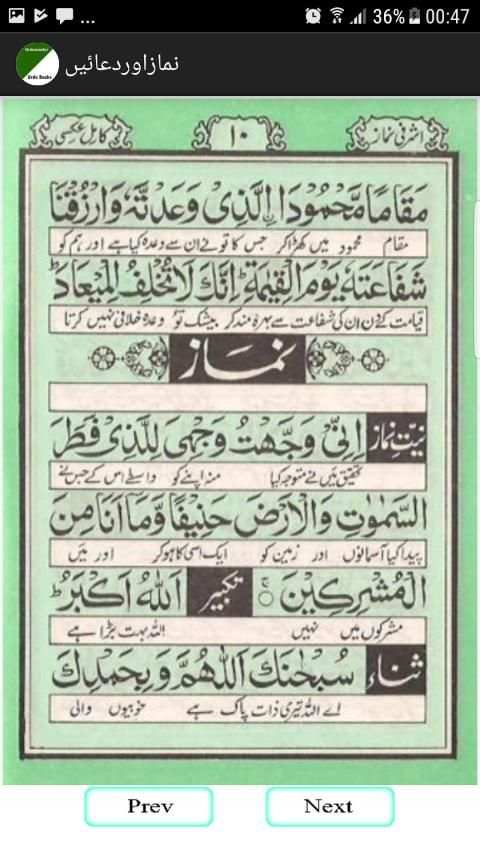 ... 36% 00:47
نماز اور دعائیں
Urdu Books
اشرفی نماز ١٠ کامل عکسی
مَقَامًا مَّحْمُوْدَا الَّذِیْ وَعَدْتَّهٗ وَارْزُقْنَا
مقام محمود میں کھڑا کر جس کا تونے ان سے وعدہ کیا ہے اور ہم کو
شَفَاعَتَهٗ یَوْمَ الْقِیٰمَةِ ؕ اِنَّكَ لَا تُخْلِفُ الْمِیْعَادَ ؕ
قیامت کے دن ان کی شفاعت سے بہرہ مند کر بیشک تو وعدہ خلافی نہیں کرتا
نماز
نیّت نماز اِنِّیْ وَجَّهْتُ وَجْهِیَ لِلَّذِیْ فَطَرَ
تحقیق میں نے متوجہ کیا منہ اپنے کو واسطے اس کے جس نے
السَّمٰوٰتِ وَالْاَرْضَ حَنِیْفًا وَّمَآ اَنَا مِنَ
پیدا کیا آسمانوں اور زمین کو ایک اسی کا ہو کر اور میں
الْمُشْرِكِیْنَ ○ تکبیر اَللهُ اَكْبَرُ ؕ
مشرکوں میں نہیں اللہ بہت بڑا ہے
ثناء سُبْحٰنَكَ اَللّٰهُمَّ وَبِحَمْدِكَ
اے اللہ تیری ذات پاک ہے خوبیوں والی
Prev Next